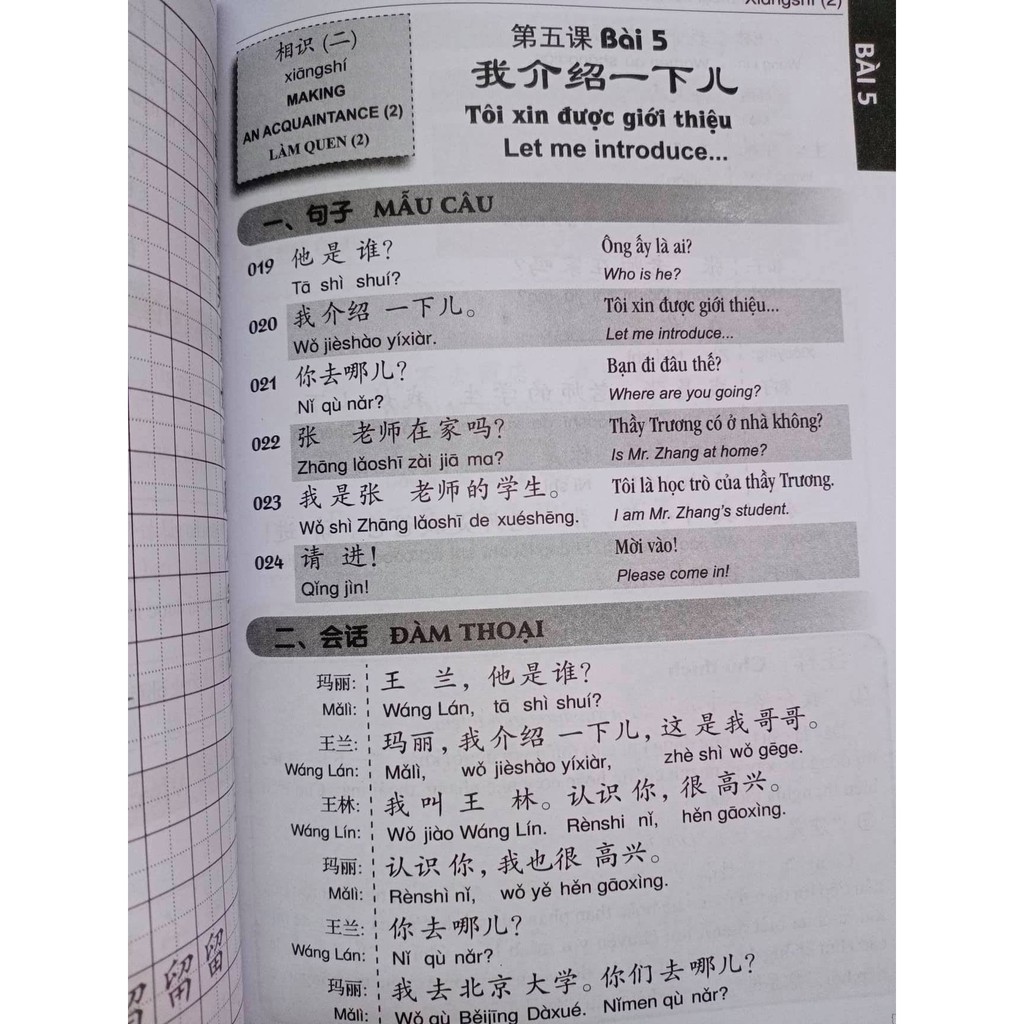 Xiāngshí (2)
相识 (二)
xiāngshí
MAKING
AN ACQUAINTANCE (2)
LÀM QUEN (2)
第五课 Bài 5
我介绍一下儿
Tôi xin được giới thiệu
Let me introduce...
BÀI 5
一、句子 MẪU CÂU
019 他是谁? Ông ấy là ai?
Tā shì shuí? Who is he?
020 我介绍一下儿。 Tôi xin được giới thiệu...
Wǒ jièshào yíxiàr. Let me introduce...
021 你去哪儿? Bạn đi đâu thế?
Nǐ qù nǎr? Where are you going?
022 张 老师在家吗? Thầy Trương có ở nhà không?
Zhāng lǎoshī zài jiā ma? Is Mr. Zhang at home?
023 我是张 老师的学生。 Tôi là học trò của thầy Trương.
Wǒ shì Zhāng lǎoshī de xuéshēng. I am Mr. Zhang's student.
024 请进! Mời vào!
Qǐng jìn! Please come in!
二、会话 ĐÀM THOẠI
玛丽: 王 兰, 他是谁?
Mǎlì: Wáng Lán, tā shì shuí?
王兰: 玛丽, 我介绍一下儿, 这是我哥哥。
Wáng Lán: Mǎlì, wǒ jièshào yíxiàr, zhè shì wǒ gēge.
王林: 我叫王 林。认识你, 很高兴。
Wáng Lín: Wǒ jiào Wáng Lín. Rènshi nǐ, hěn gāoxìng.
玛丽: 认识你, 我也很高兴。
Mǎlì: Rènshì nǐ, wǒ yě hěn gāoxìng.
王兰: 你去哪儿?
Wáng Lán: Nǐ qù nǎr?
玛丽: 我去北京大学。你们去哪儿?
Mǎlì: Wǒ qù Běijīng Dàxué. Nǐmen qù nǎr?
留留留